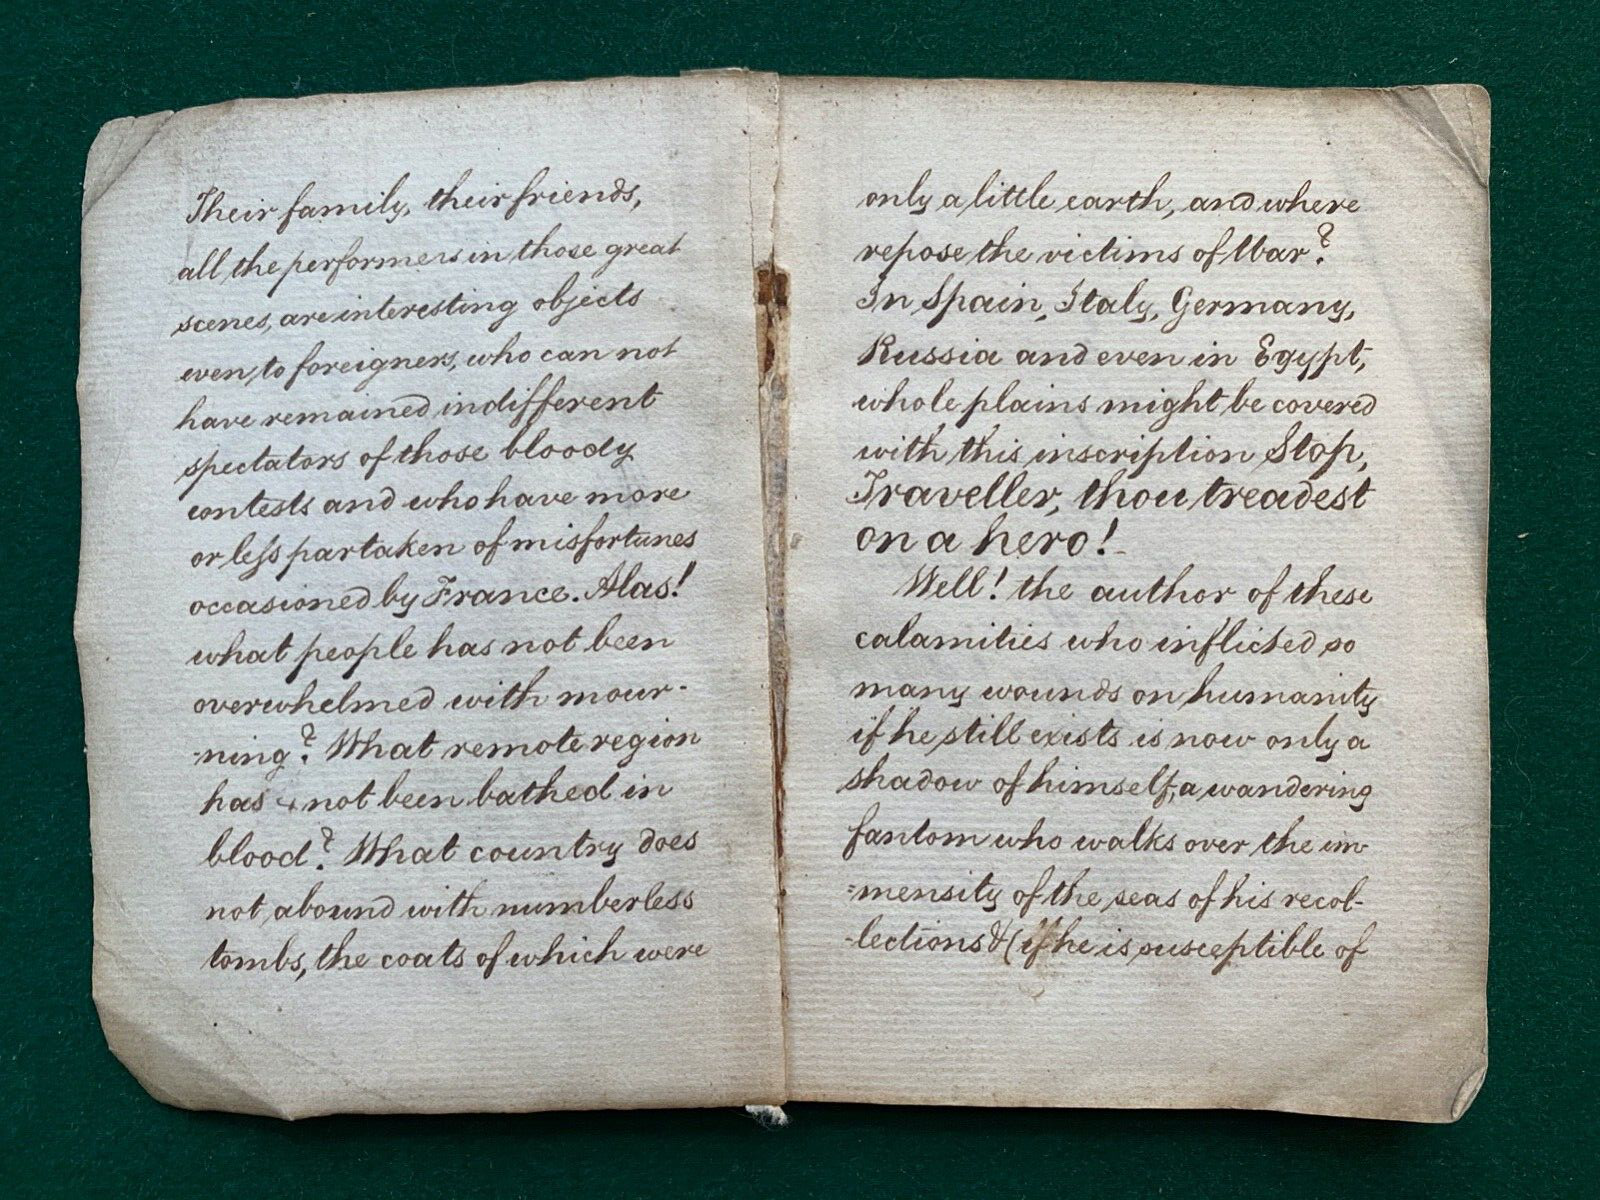 Their family, their friends,
all the performers in those great
scenes, are interesting objects
even, to foreigners, who can not
have remained indifferent
spectators of those bloody
contests and who have more
or less partaken of misfortunes
occasioned by France. Alas!
what people has not been
overwhelmed with mour-
-ning? What remote region
has not been bathed in
blood? What country does
not abound with numberless
tombs, the coats of which were
only a little earth, and where
repose the victims of War?
In Spain, Italy, Germany,
Russia and even in Egypt,
whole plains might be covered
with this inscription Stop,
Traveller, thou treadest
on a hero!
Well! the author of these
calamities who inflicted so
many wounds on humanity
if he still exists is now only a
shadow of himself, a wandering
fantom who walks over the im
=mensity of the seas of his recol-
-lections & (if he is susceptible of